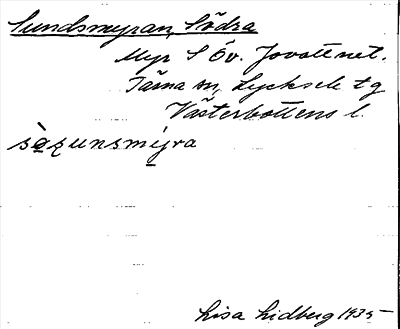 Sundsmyran, Södra
Myr S Öv. Jovattnet.
Tärna sn, Lycksele tg
Västerbottens l.
sö̀ʒunsmyra
Lisa Lidberg 1935